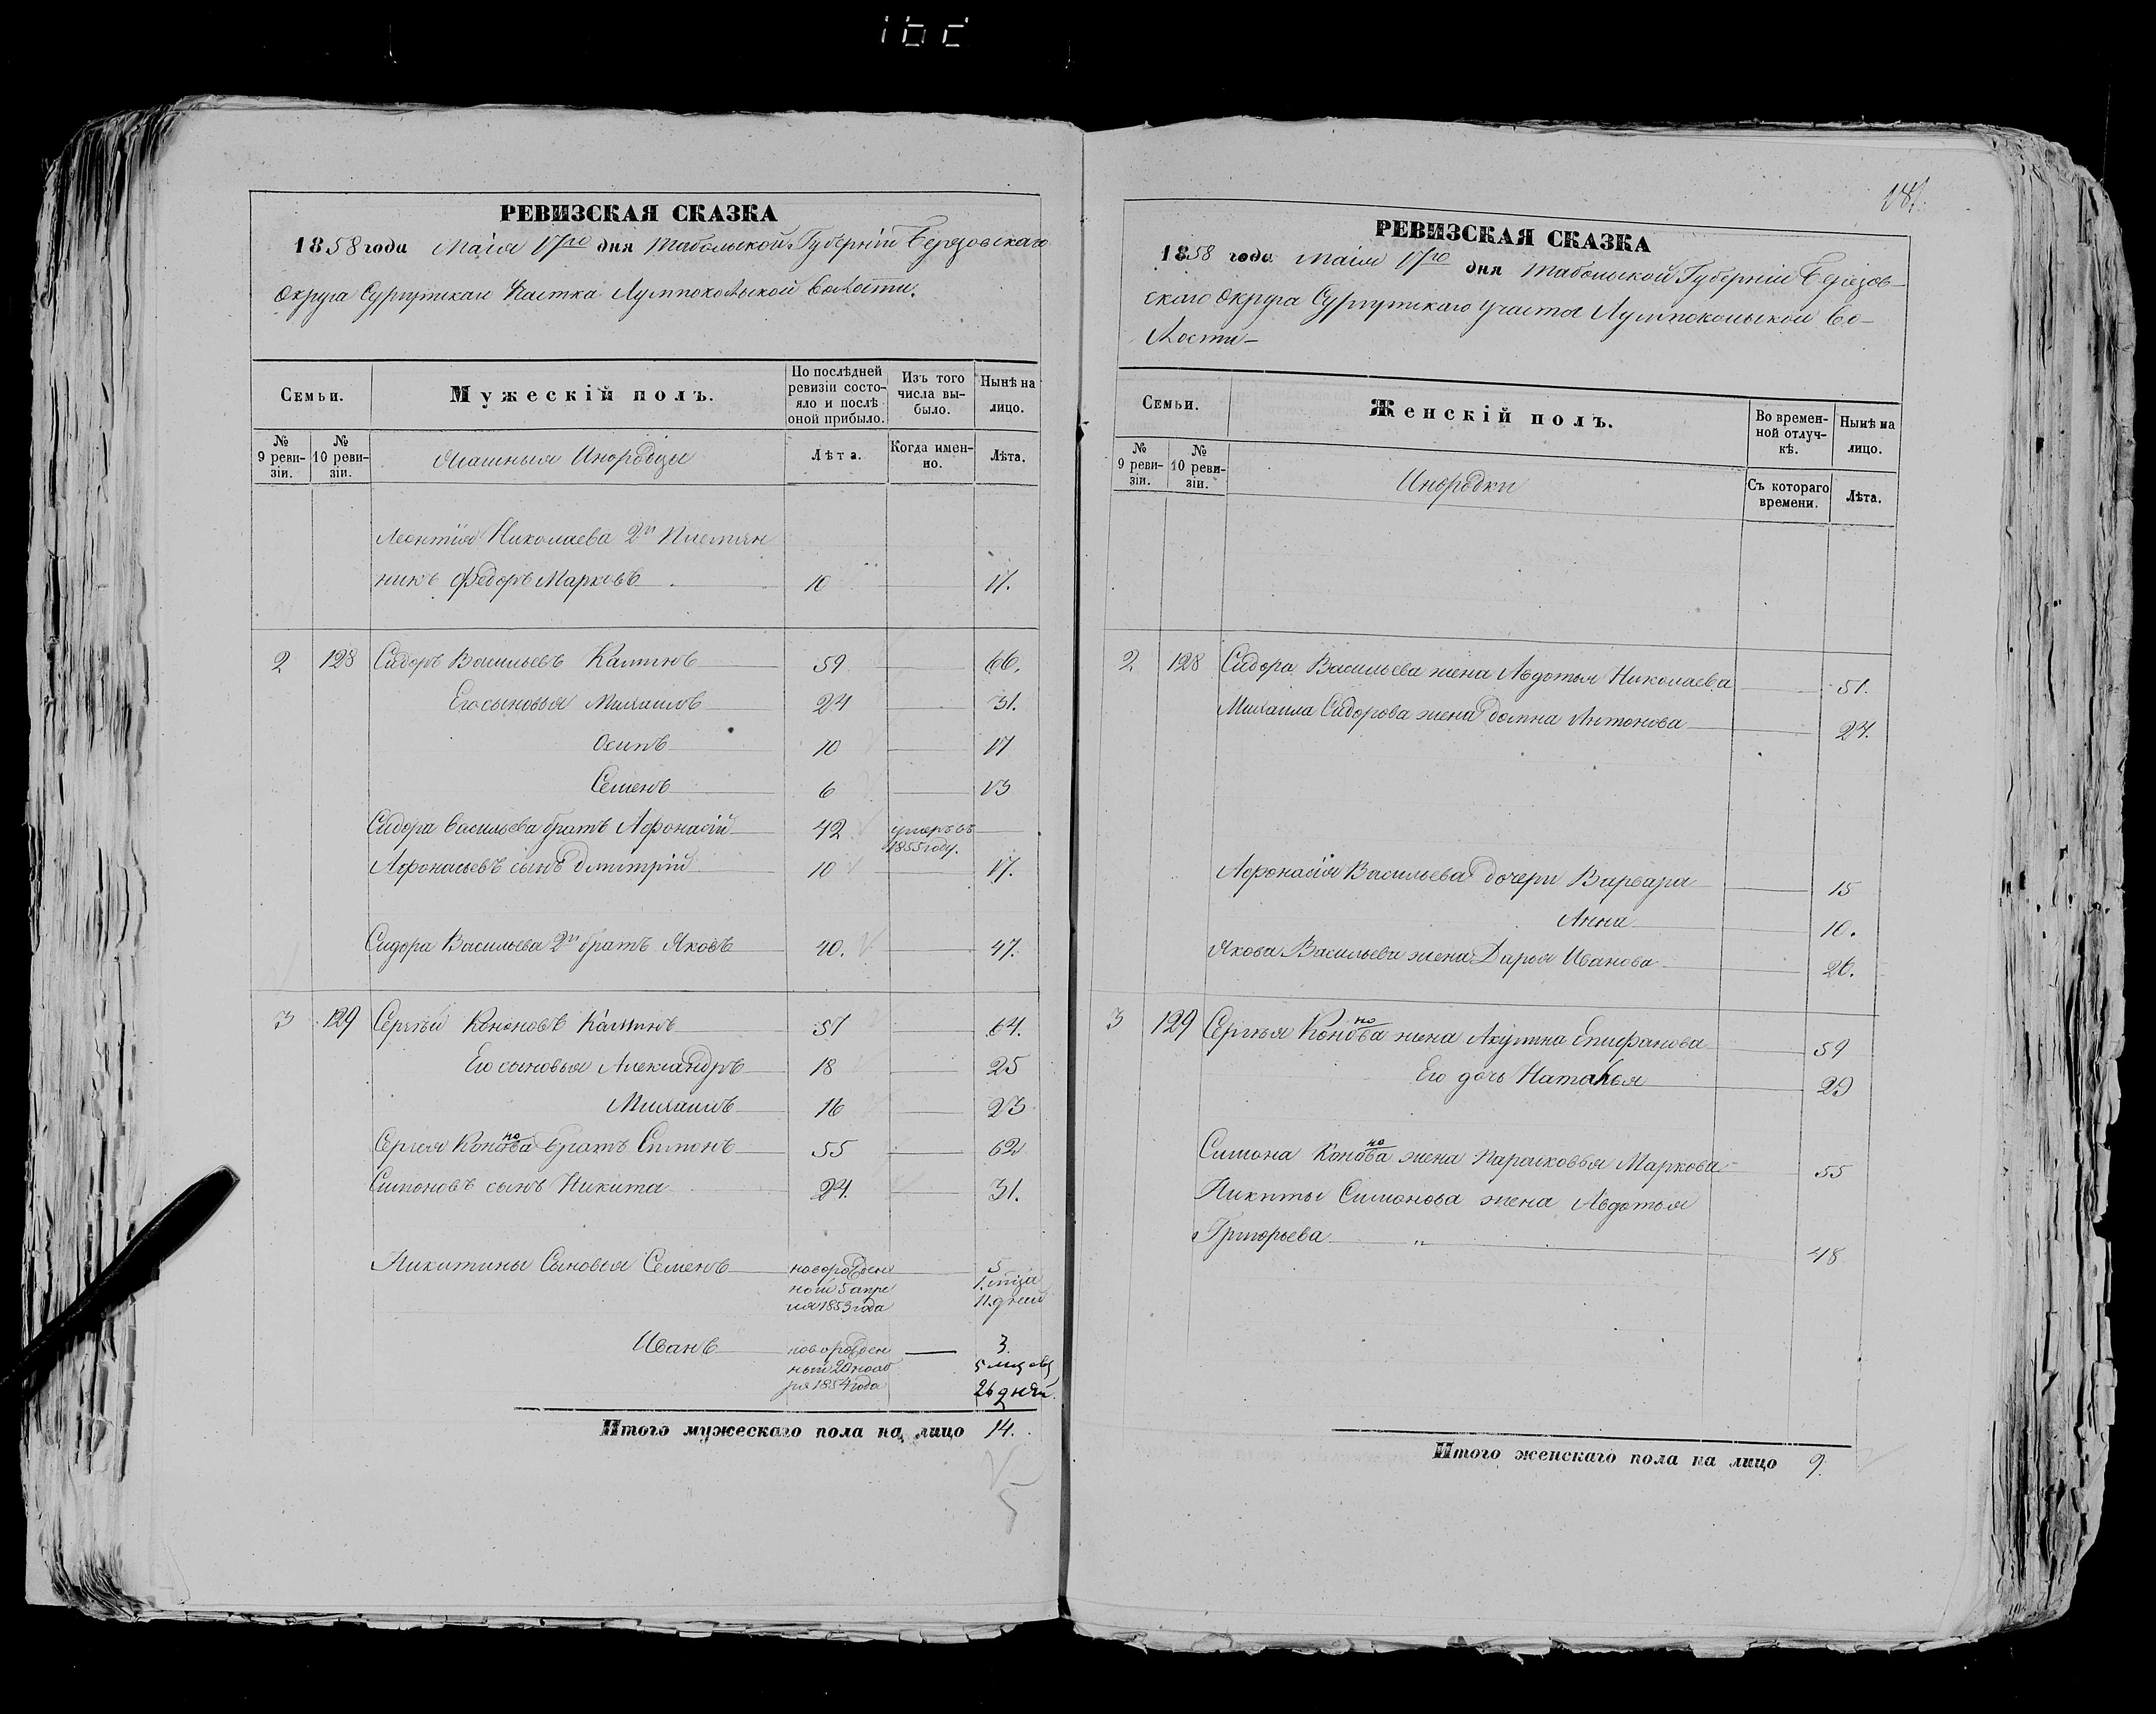 РЕВИЗСКАЯ СКАЗКА
1858 года Маія 17го дня Тобольской Губерніи Березовскаго
Округа Сургутскаго Участка Лумпокольской Волости.
Семьи.
Мужескій полъ.
По послѣдней ревизіи состояло и послѣ оной прибыло.
Изъ того числа выбыло.
Нынѣ на лицо.
№ 9 ревизіи.
№ 10 ревизіи.
Инородцы
Лѣта.
Когда именно.
Лѣта.
Леонтія Николаева 2й племян
никъ Федоръ Марковъ 10 17.
2 128 Сидоръ Васильевъ Калинъ 59 66.
Его сыновья Михаилъ 24 31.
Осипъ 10 17
Семенъ 6 13
Сидора Васильева братъ Афонасій 42 умеръ въ
1855 году.
Афонасьевъ сынъ Дмитрій 10 17.
Сидора Васильева 2й братъ Яковъ 40. 47.
3 129 Сергѣй Кононовъ Калинъ 57 64.
Его сыновья Александръ 18 25
Михаилъ 16 23
Сергея Кононова братъ Симонъ 55 62
Симоновъ сынъ Никита 24. 31.
Никитины Сыновья Семенъ новорожден 5
ной 5 апре 1. мѣся
ля 1853 года 11. дней
Иванъ новорожден 3.
ный 20 нояб 5 мцовъ
ря 1854 года 26 дней.
Итого мужескаго пола на лицо 14.
181.
РЕВИЗСКАЯ СКАЗКА
1858 года Маія 17го дня Тобольской Губерніи Березов-
скаго Округа Сургутскаго участка Лумпокольской Во-
лости
Семьи.
Женскій полъ.
Во временной отлучкѣ.
Нынѣ на лицо.
№ 9 ревизіи.
№ 10 ревизіи.
Инородки
Съ котораго времени.
Лѣта.
2 128 Сидора Васильева жена Авдотья Николаева 51.
Михаила Сидорова жена Домна Антонова 27.
Афонасія Васильева дочери Варвара 15
Анна 10.
Якова Васильева жена Дарья Иванова 26.
3 129 Сергѣя Кононова жена Акулина Епифанова 59
Его дочь Наталья 29
Симона Кононова жена Парасковья Маркова 55
Никиты Симонова жена Авдотья
Григорьева " 48
Итого женскаго пола на лицо 9.